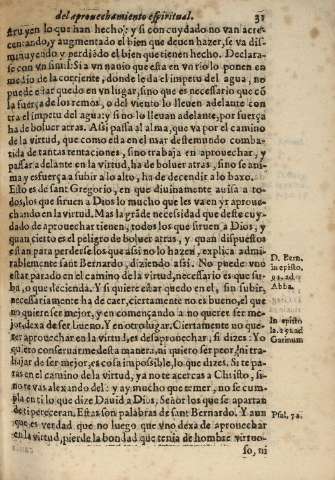 del aprouechamiento espiritual. 31
struyen lo que han hecho: y si con cuydado no van acre-
centando, y augmentado el bien que deuen hazer, se va dis-
minuyendo y perdiẽdo el bien que tienen hecho. Declara-
se con vn simil: Si a vn nauio que esta en vn rio lo ponen en
medio de la corriente, donde le da el impetu del agua, no
puede estar quedo en vn lugar, sino que es necessario que cõ
la fuerça de los remos, o del viento lo lleuen adelante con
tra el impetu del agua: y si no lo lleuan adelante, por fuerça
ha de boluer atras. Assi passa al alma, que va por el camino
de la virtud, que como esta en el mar deste mundo comba-
tida de tantas tentaciones, sino trabaja en aprouechar, y
passar adelante en la virtud, ha de boluer atras, sino se ani-
ma y esfuerça a subir a lo alto, ha de decendir a lo baxo.
Esto es de sant Gregorio, en que diuinamente auisa a to-
dos, los que siruen a Dios lo mucho que les va en yr aproue-
chando en la virtud. Mas la grãde necessidad que deste cuy-
dado de aprouechar tienen, todos los que siruen a Dios, y
quan cierto es el peligro de boluer atras, y quan dispuestos
estan para perderse los que assi no lo hazen, explica admi-
rablemente sant Bernardo, diziendo assi. No puede vno
estar parado en el camino de la virtud, necessario es que su-
ba, o que decienda. Y si quiere estar quedo en el, sin subir,
necessariamente ha de caer, ciertamente no es bueno, el que
no quiere ser mejor, y en començando a no querer ser me-
jor, dexa de ser bueno. Y en otro lugar. Ciertamente no que-
rer aprouechar en la virtud, es desaprouechar, si dizes: Yo
quiero conseruarme desta manera, ni quiero ser peor, ni tra-
bajar de ser mejor, es cosa impossible, lo que dizes. Si te pa-
ras en el camino de la virtud, ya no te acercas a Christo, si-
no te vas alexando del: y ay mucho que temer, no se cum-
pla en ti lo que dize Dauid a Dios, Señor los que se apartan
de ti pereceran. Estas son palabras de sant Bernardo. Y aun
que es verdad que no luego que vno dexa de aprouechar
en la virtud, pierde la bondad que tenia de hombre virtuo-
so, ni
D. Bern.
in episto.
94. ad
Abba.
In episto
la. 254 ad
Garinum
Psal. 72.